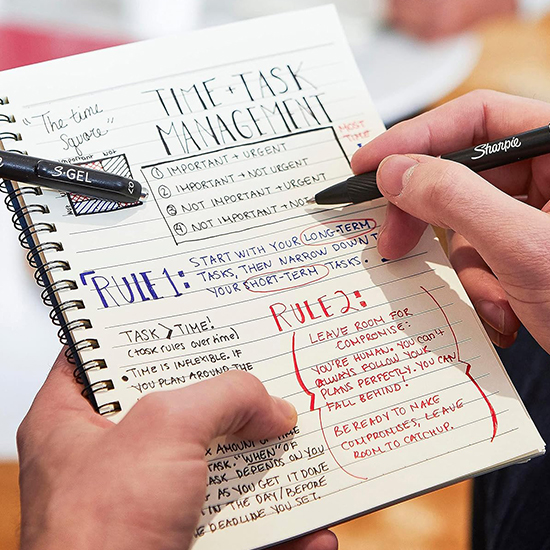 TIME + TASK
MANAGEMENT
"The time
Square"
IMPORTANT NOT
MOST
TIME
① IMPORTANT + URGENT
② IMPORTANT + NOT URGENT
③ NOT IMPORTANT + URGENT
④ NOT IMPORTANT + NOT
S·GEL
Sharpie
RULE 1:
START WITH YOUR LONG-TERM
TASKS, THEN NARROW DOWN T
YOUR SHORT-TERM TASKS.
TASK > TIME!
(task rules over time)
• TIME IS INFLEXIBLE. IF
YOU PLAN AROUND THE
X AMOUNT OF TIME
TASK. "WHEN" OF
TASK DEPENDS ON YOU
AS YOU GET IT DONE
IN THE DAY/BEFORE
HE DEADLINE YOU SET.
RULE 2:
LEAVE ROOM FOR
COMPROMISE:
YOU'RE HUMAN. YOU CAN'T
ALWAYS FOLLOW YOUR
PLANS PERFECTLY. YOU CAN
FALL BEHIND!
BE READY TO MAKE
COMPROMISES, LEAVE
ROOM TO CATCHUP.